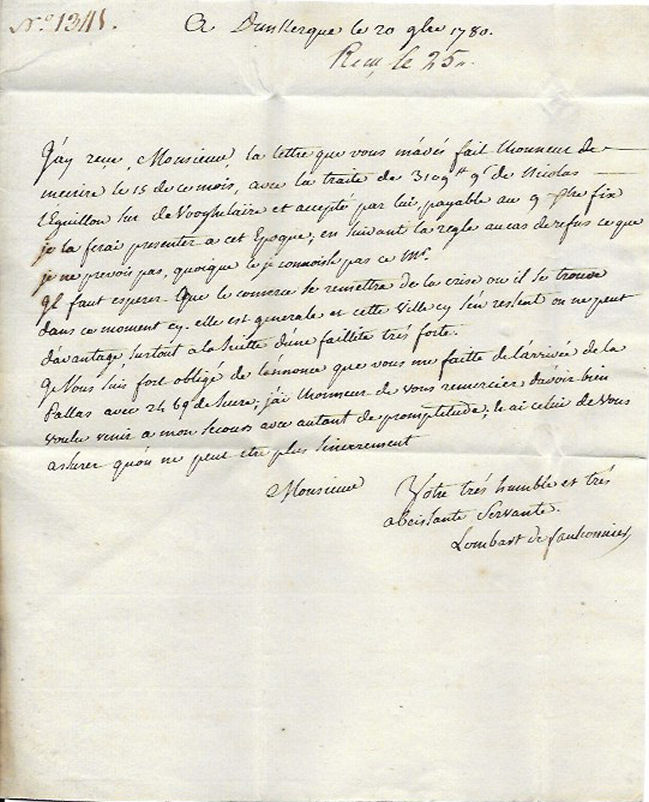 N.o 1341.
A Dunkerque le 20 9bre 1780.
Recu le 25
J'ay reçu, Monsieur, la lettre que vous m'avés fait lhonneur de
mécrire le 15 de ce mois, avec la traite de 3109 tt 9 s de Nicolas
Eguillon sur de Vooghelaire et accepté par lui, payable au 9 fixe
je la ferai presenter a cet Epoque, en suivant la regle au cas de refus ce que
je ne prevois pas, quoique le je connoisse pas ce Mr.
Il faut esperer que le comerce se remettra de la crise ou il se trouve
dans ce moment cy. elle est generale et cette Ville cy s'en ressent on ne peut
davantage, surtout a la suitte d'une faillite trés forte.
Je vous suis fort obligé de lannonce que vous me faitte de larrivée de la
Pallas avec 24 de Sucre, j'ai lhonneur de vous remercier davoir bien
voulu venir a mon secours avec autant de promptitude, et ai celui de vous
assurer qu'on ne peut etre plus sincerement
Monsieur Votre trés humble et trés
obeissante Servante.
Lombart de fauconnier